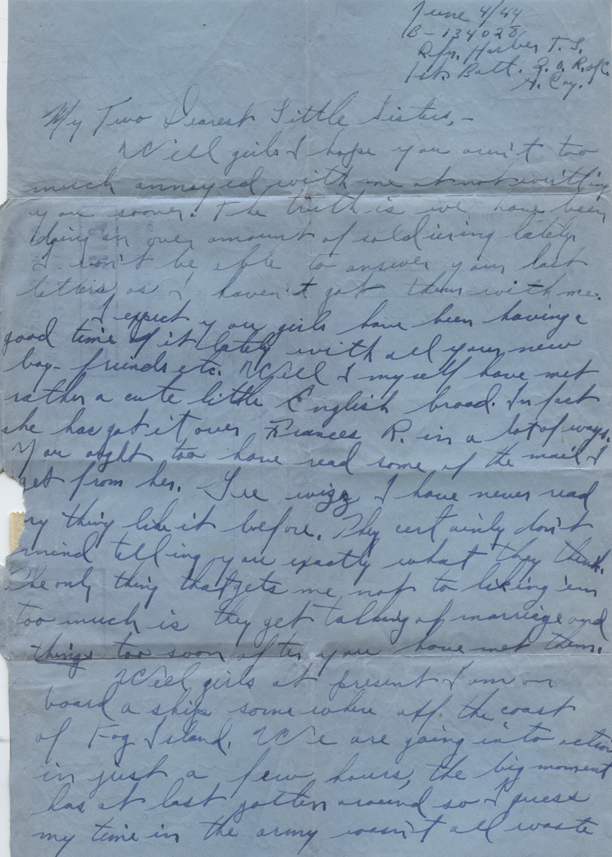 June 4/44
B-134028
Rfn. Harber T. S.
1st Batt. Q. O. R. of C.
A. Coy.
My Two Dearest Little Sisters,-
Well girls I hope you arn't too
much annoyed with me at not writting
you sooner! The truth is we have been
doing an over amount of soldiering lately
I won't be able to answer your last
letters as I haven't got them with me.
I expect you girls have been having a
good time of it lately with all your new
boy-friends etc. Well I myself have met
rather a cute little English broad. In fact
she has got it over Frances R. in a lot of ways.
You ought too have read some of the mail I
get from her. Gee wizz I have never read
ny thing like it before. They certainly don't
mind telling you exactly what they think.
The only thing that gets me not to liking 'em
too much is they get talking of marriage and
things too soon after you have met them.
Well girls at present I am on
board a ship some where off the coast
of Fog Island. We are going into action
in just a few hours, the big moment
has at last gotten around so I guess
my time in the army wasn't all waste